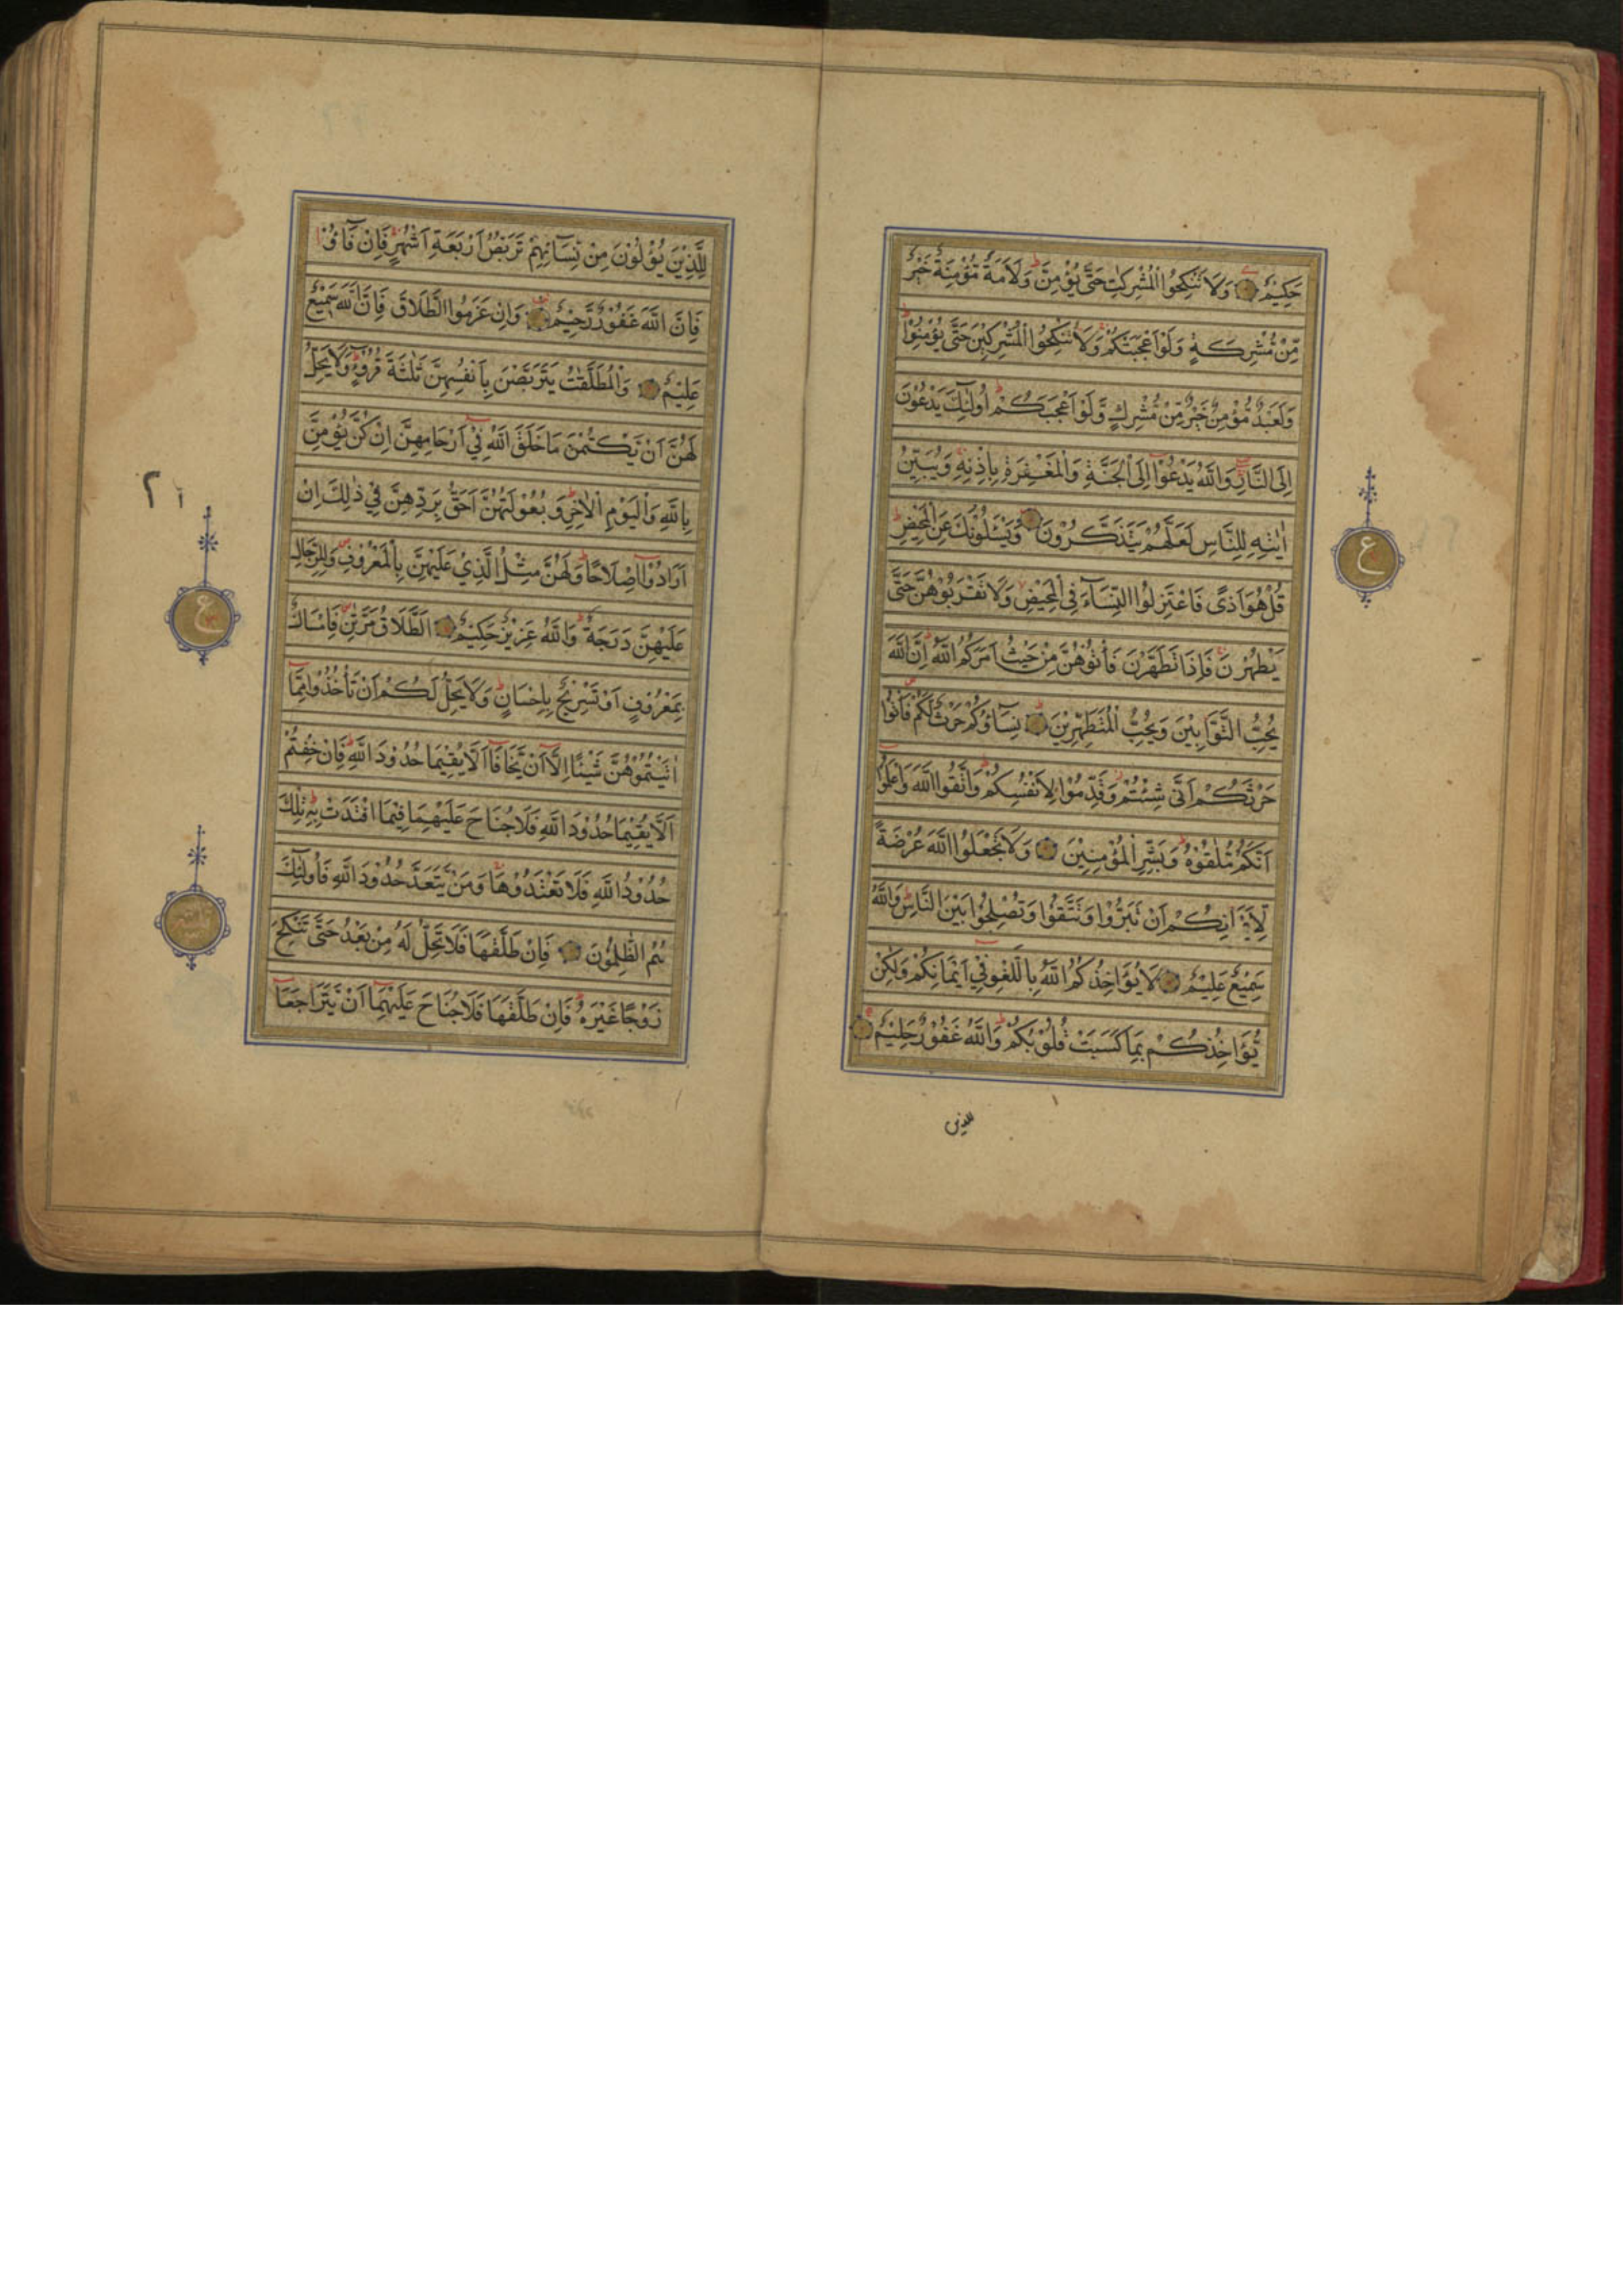 حَكِيْمٌ وَلَا تَنْكِحُوا الْمُشْرِكٰتِ حَتّٰى يُؤْمِنَّ ط وَلَاَمَةٌ مُّؤْمِنَةٌ خَيْرٌ
مِّنْ مُّشْرِكَةٍ وَّلَوْ اَعْجَبَتْكُمْ وَلَا تُنْكِحُوا الْمُشْرِكِيْنَ حَتّٰى يُؤْمِنُوْا ط
وَلَعَبْدٌ مُّؤْمِنٌ خَيْرٌ مِّنْ مُّشْرِكٍ وَّلَوْ اَعْجَبَكُمْ ط اُولٰٓئِكَ يَدْعُوْنَ
اِلَى النَّارِ وَاللّٰهُ يَدْعُوْٓا اِلَى الْجَنَّةِ وَالْمَغْفِرَةِ بِاِذْنِهٖ وَيُبَيِّنُ
اٰيٰتِهٖ لِلنَّاسِ لَعَلَّهُمْ يَتَذَكَّرُوْنَ وَيَسْئَلُوْنَكَ عَنِ الْمَحِيْضِ ط
قُلْ هُوَ اَذًى فَاعْتَزِلُوا النِّسَآءَ فِى الْمَحِيْضِ وَلَا تَقْرَبُوْهُنَّ حَتّٰى
يَطْهُرْنَ فَاِذَا تَطَهَّرْنَ فَأْتُوْهُنَّ مِنْ حَيْثُ اَمَرَكُمُ اللّٰهُ ط اِنَّ اللّٰهَ
يُحِبُّ التَّوَّابِيْنَ وَيُحِبُّ الْمُتَطَهِّرِيْنَ نِسَآؤُكُمْ حَرْثٌ لَّكُمْ فَأْتُوْا
حَرْثَكُمْ اَنّٰى شِئْتُمْ وَقَدِّمُوْا لِاَنْفُسِكُمْ ط وَاتَّقُوا اللّٰهَ وَاعْلَمُوْٓا
اَنَّكُمْ مُّلٰقُوْهُ ط وَبَشِّرِ الْمُؤْمِنِيْنَ وَلَا تَجْعَلُوا اللّٰهَ عُرْضَةً
لِّاَيْمَانِكُمْ اَنْ تَبَرُّوْا وَتَتَّقُوْا وَتُصْلِحُوْا بَيْنَ النَّاسِ ط وَاللّٰهُ
سَمِيْعٌ عَلِيْمٌ لَا يُؤَاخِذُكُمُ اللّٰهُ بِاللَّغْوِ فِىْٓ اَيْمَانِكُمْ وَلٰكِنْ
يُّؤَاخِذُكُمْ بِمَا كَسَبَتْ قُلُوْبُكُمْ ط وَاللّٰهُ غَفُوْرٌ حَلِيْمٌ
للذين
ع
لِلَّذِيْنَ يُؤْلُوْنَ مِنْ نِّسَآئِهِمْ تَرَبُّصُ اَرْبَعَةِ اَشْهُرٍ فَاِنْ فَآءُوْ
فَاِنَّ اللّٰهَ غَفُوْرٌ رَّحِيْمٌ وَاِنْ عَزَمُوا الطَّلَاقَ فَاِنَّ اللّٰهَ سَمِيْعٌ
عَلِيْمٌ وَالْمُطَلَّقٰتُ يَتَرَبَّصْنَ بِاَنْفُسِهِنَّ ثَلٰثَةَ قُرُوْٓءٍ ط وَلَا يَحِلُّ
لَهُنَّ اَنْ يَّكْتُمْنَ مَا خَلَقَ اللّٰهُ فِىْٓ اَرْحَامِهِنَّ اِنْ كُنَّ يُؤْمِنَّ
بِاللّٰهِ وَالْيَوْمِ الْاٰخِرِ ط وَبُعُوْلَتُهُنَّ اَحَقُّ بِرَدِّهِنَّ فِىْ ذٰلِكَ اِنْ
اَرَادُوْٓا اِصْلَاحًا ط وَلَهُنَّ مِثْلُ الَّذِىْ عَلَيْهِنَّ بِالْمَعْرُوْفِ وَلِلرِّجَالِ
عَلَيْهِنَّ دَرَجَةٌ ط وَاللّٰهُ عَزِيْزٌ حَكِيْمٌ اَلطَّلَاقُ مَرَّتٰنِ فَاِمْسَاكٌ
بِمَعْرُوْفٍ اَوْ تَسْرِيْحٌ بِاِحْسَانٍ ط وَلَا يَحِلُّ لَكُمْ اَنْ تَأْخُذُوْا مِمَّآ
اٰتَيْتُمُوْهُنَّ شَيْئًا اِلَّآ اَنْ يَّخَافَآ اَلَّا يُقِيْمَا حُدُوْدَ اللّٰهِ ط فَاِنْ خِفْتُمْ
اَلَّا يُقِيْمَا حُدُوْدَ اللّٰهِ فَلَا جُنَاحَ عَلَيْهِمَا فِيْمَا افْتَدَتْ بِهٖ ط تِلْكَ
حُدُوْدُ اللّٰهِ فَلَا تَعْتَدُوْهَا وَمَنْ يَّتَعَدَّ حُدُوْدَ اللّٰهِ فَاُولٰٓئِكَ
هُمُ الظّٰلِمُوْنَ فَاِنْ طَلَّقَهَا فَلَا تَحِلُّ لَهٗ مِنْ بَعْدُ حَتّٰى تَنْكِحَ
زَوْجًا غَيْرَهٗ ط فَاِنْ طَلَّقَهَا فَلَا جُنَاحَ عَلَيْهِمَآ اَنْ يَّتَرَاجَعَآ
ع